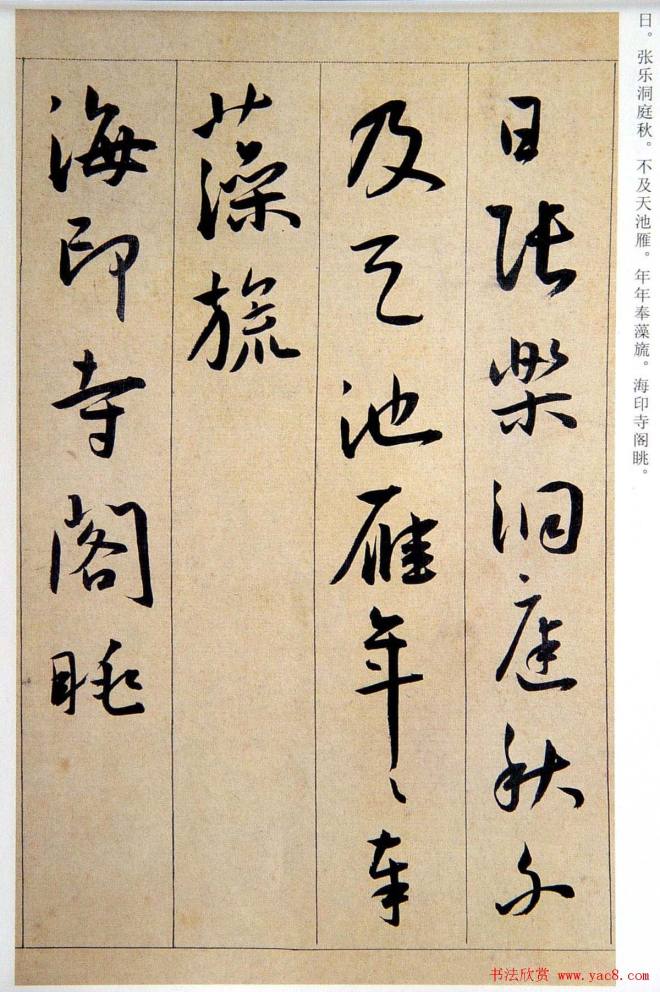 日。张乐洞庭秋。不及天池雁。年年奉藻旒。海印寺阁眺。
日張樂洞庭秋不
及天池雁年〻奉
藻旒
海印寺閣眺
书法欣赏 www.yac8.com